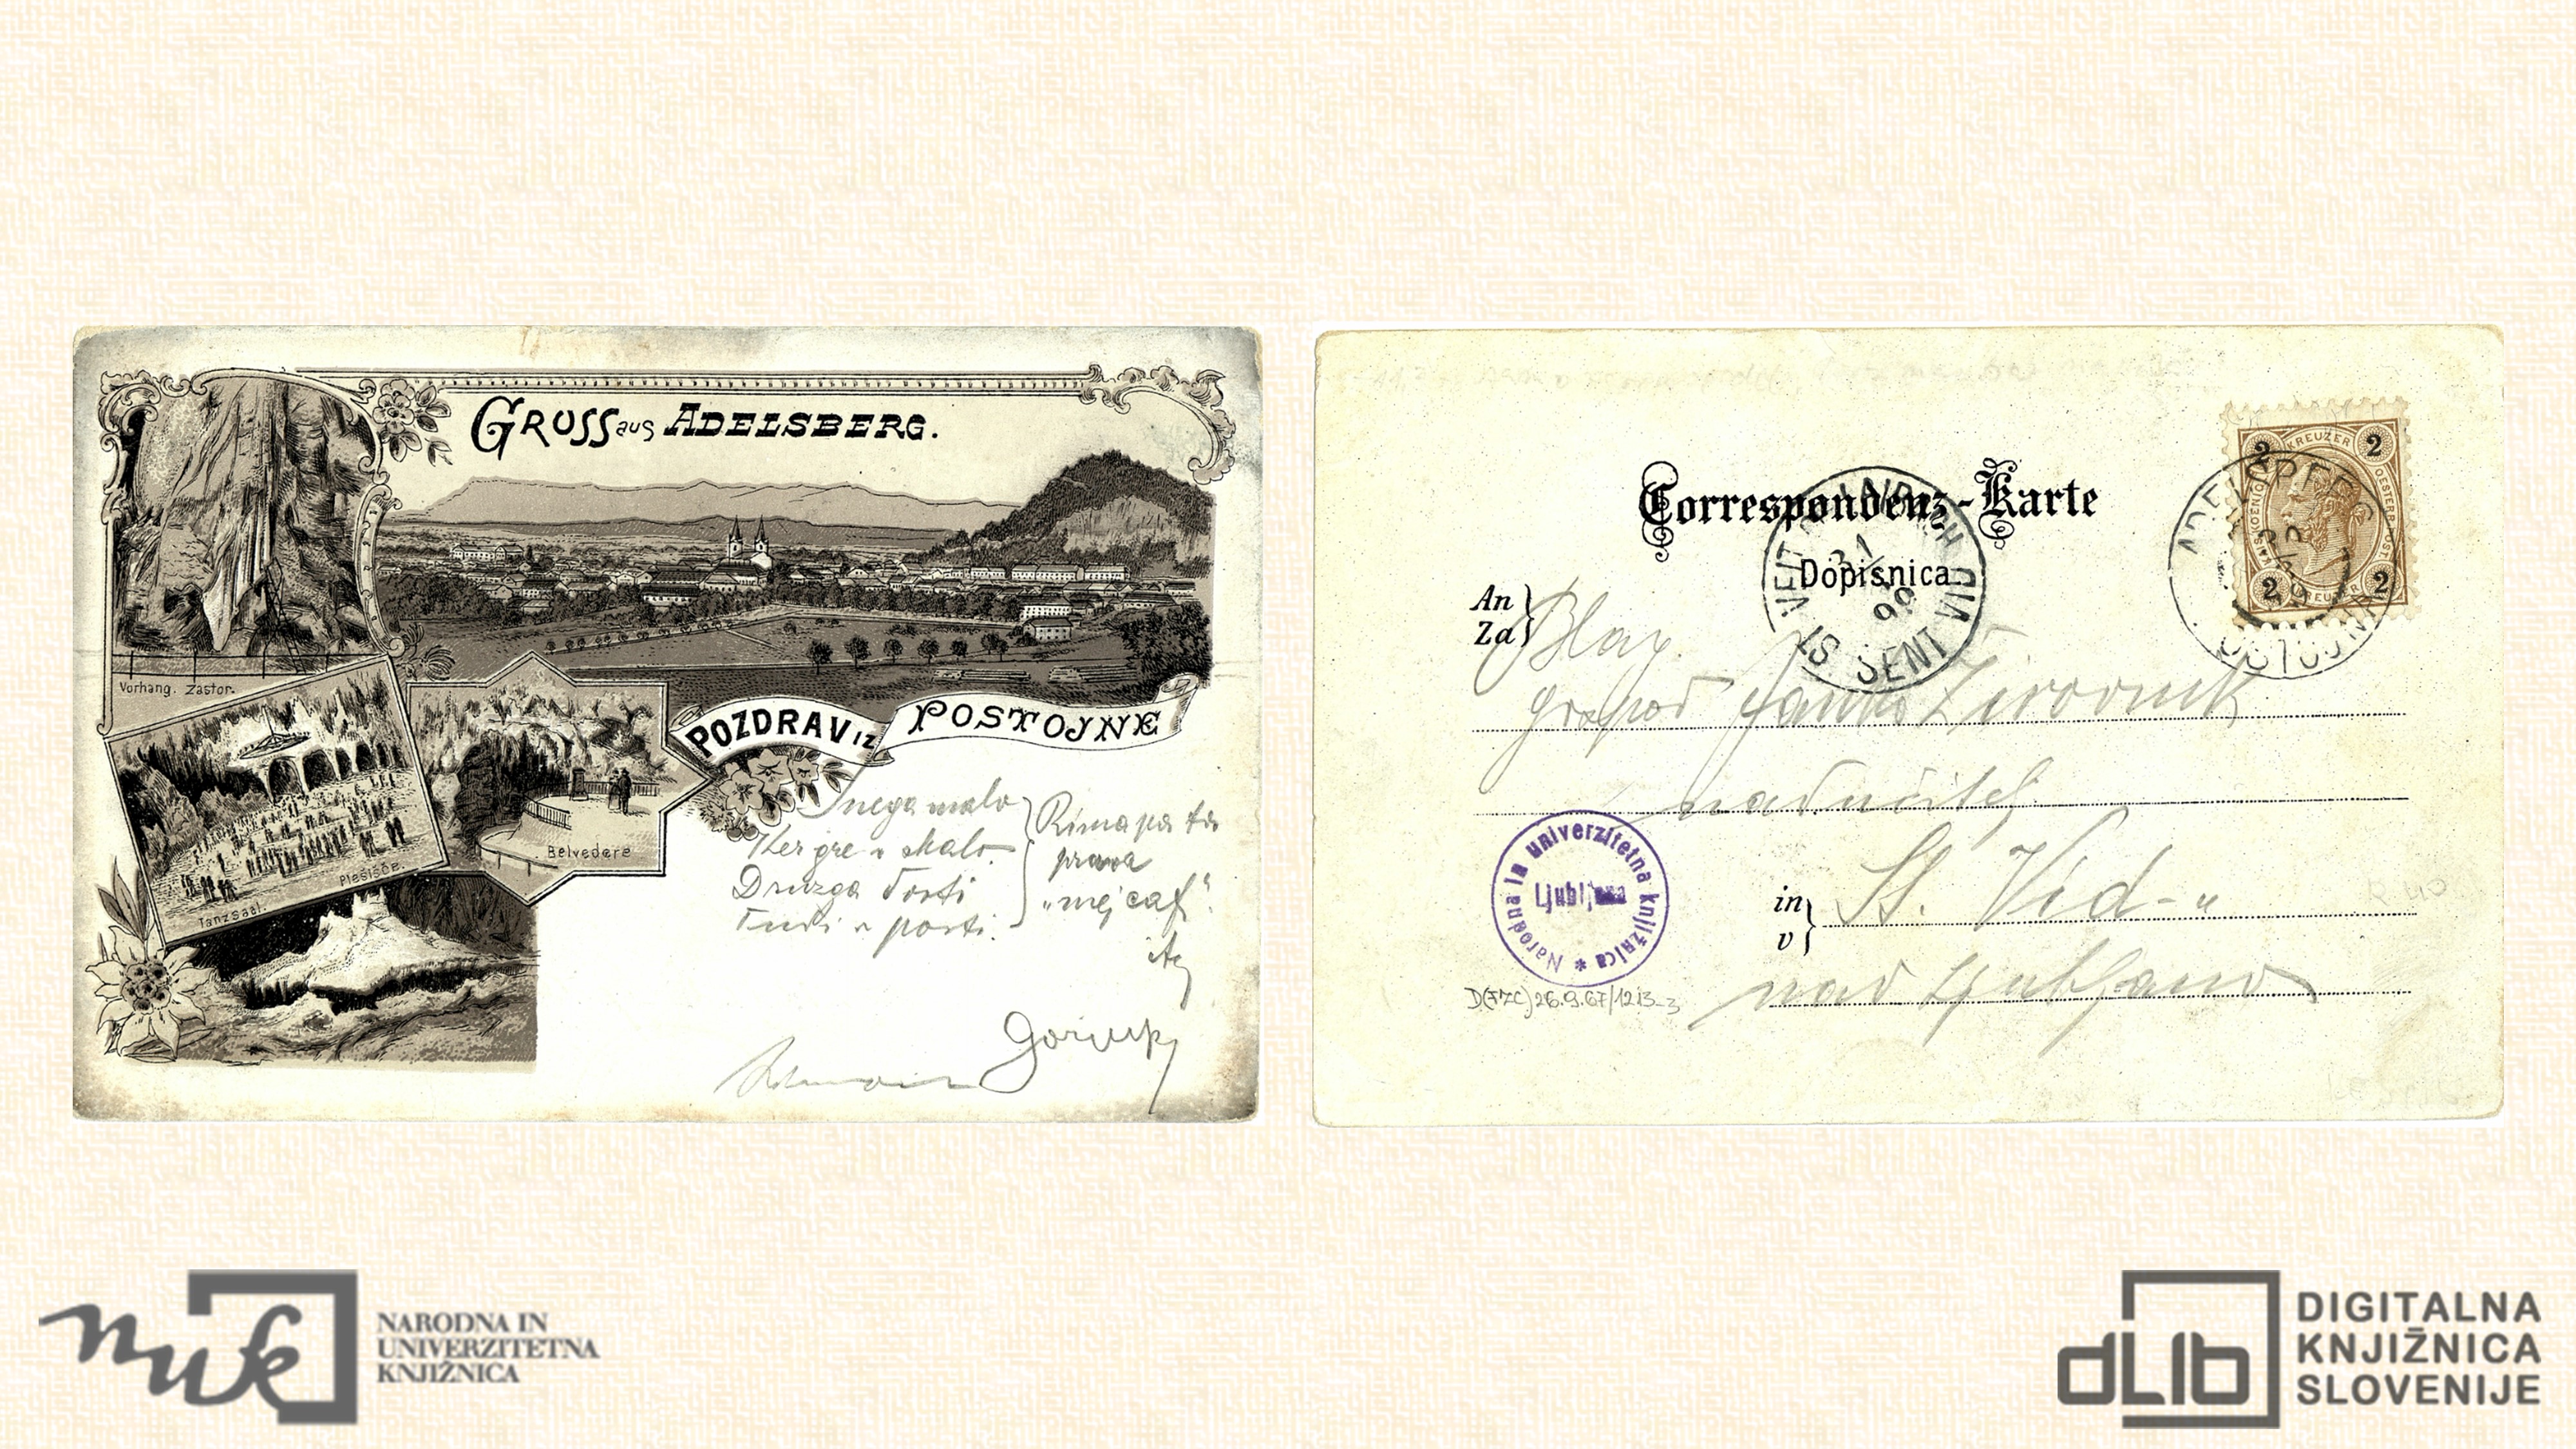 GRUSS aus ADELSBERG.
Vorhang. Zastor.
POZDRAV IZ POSTOJNE
Plesišče.
Tanzsaal.
Belvedere
Snega malo
Ker gre v skalo.
Druzga dosti
Tudi v posti.
Rima pa ta
prava
"nej caf".
Gorjup
Correspondenz-Karte
Dopisnica
An
Za
Blag.
gospod Janko Žirovnik
nadučitelj
in
v
Št. Vid-u
nad Ljubljano
2 KREUZER 2
2 KREUZER 2
ADELSBERG
POSTOJNA
ST VEIT
ŠENT VID
99
Narodna in univerzitetna knjižnica *
Ljubljana
D(FZC)26.9.67/1213-3
NARODNA IN
UNIVERZITETNA
KNJIŽNICA
nuk
dLib
DIGITALNA
KNJIŽNICA
SLOVENIJE